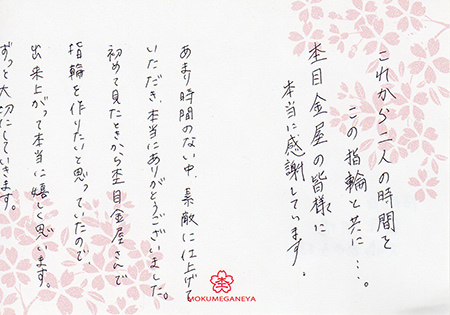 これから二人の時間を
この指輪と共に…。
杢目金屋の皆様に
本当に感謝しています。
あまり時間のない中、素敵に仕上げて
いただき、本当にありがとうございました。
初めて見たときから杢目金屋さんで
指輪を作りたいと思っていたので、
出来上がって本当に嬉しく思います。
ずっと大切にしていきます。
MOKUMEGANEYA